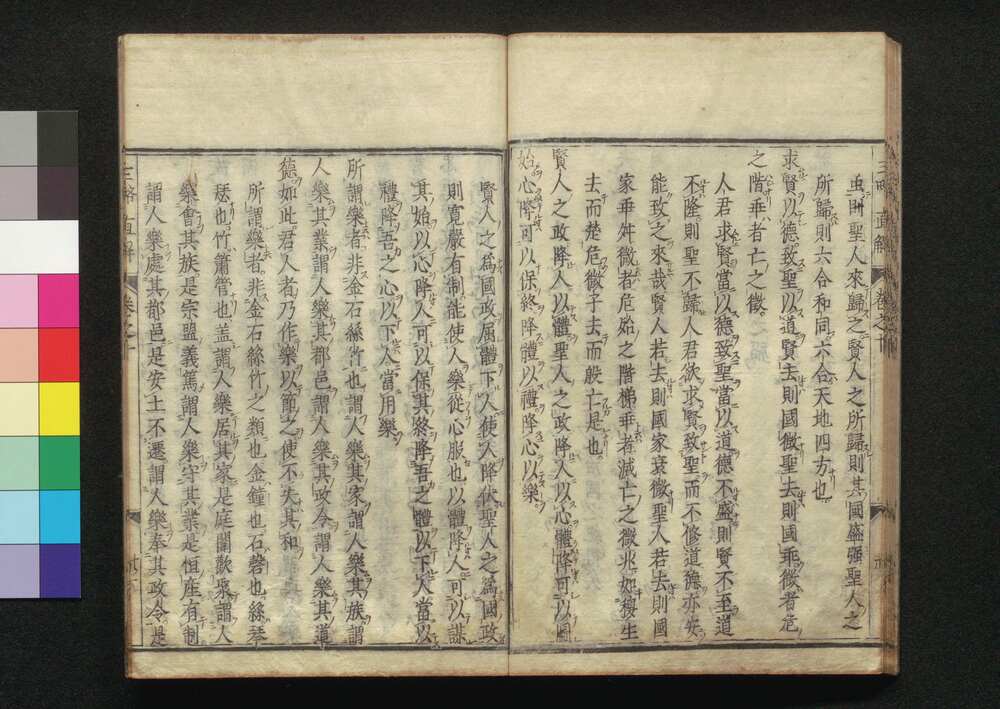 虫則聖人來歸之賢人之所歸則其國盛强聖人之
所歸則六合和同六合天地四方也
求賢以德致聖以道賢去則國微聖去則國乖微者危
之階乖者亡之徵
人君求賢當以德致聖當以道德不盛則賢不至道
不隆則聖不歸人君欲求賢致聖而不修道德亦安
能致之來哉賢人若去則國家衰微聖人若去則國
家乖舛微者危殆之階梯乖者滅亡之徵兆如稷生
去而楚危微子去而殷亡是也
賢人之政降人以體聖人之政降人以心體降可以圖
始心降可以保終降體以禮降心以樂
賢人之爲國政屈體下人使人降伏聖人之爲國政
則寬嚴有制能使人樂從心服也以體降人可以謀
其始以心降人可以保其終降吾之體以下人當以
禮降吾之心以下人當用樂
所謂樂者非金石絲竹也謂人樂其家謂人樂其族謂
人樂其業謂人樂其都邑謂人樂其政令謂人樂其道
德如此君人者乃作樂以節之使不失其和
所謂樂者非金石絲竹之類也金鐘也石磬也絲琴
瑟也竹簫管也蓋謂人樂居其家是庭闈歡聚謂人
樂會其族是宗盟義篤謂人樂守其業是恒産有制
謂人樂處其都邑是安土不遷謂人樂奉其政令是